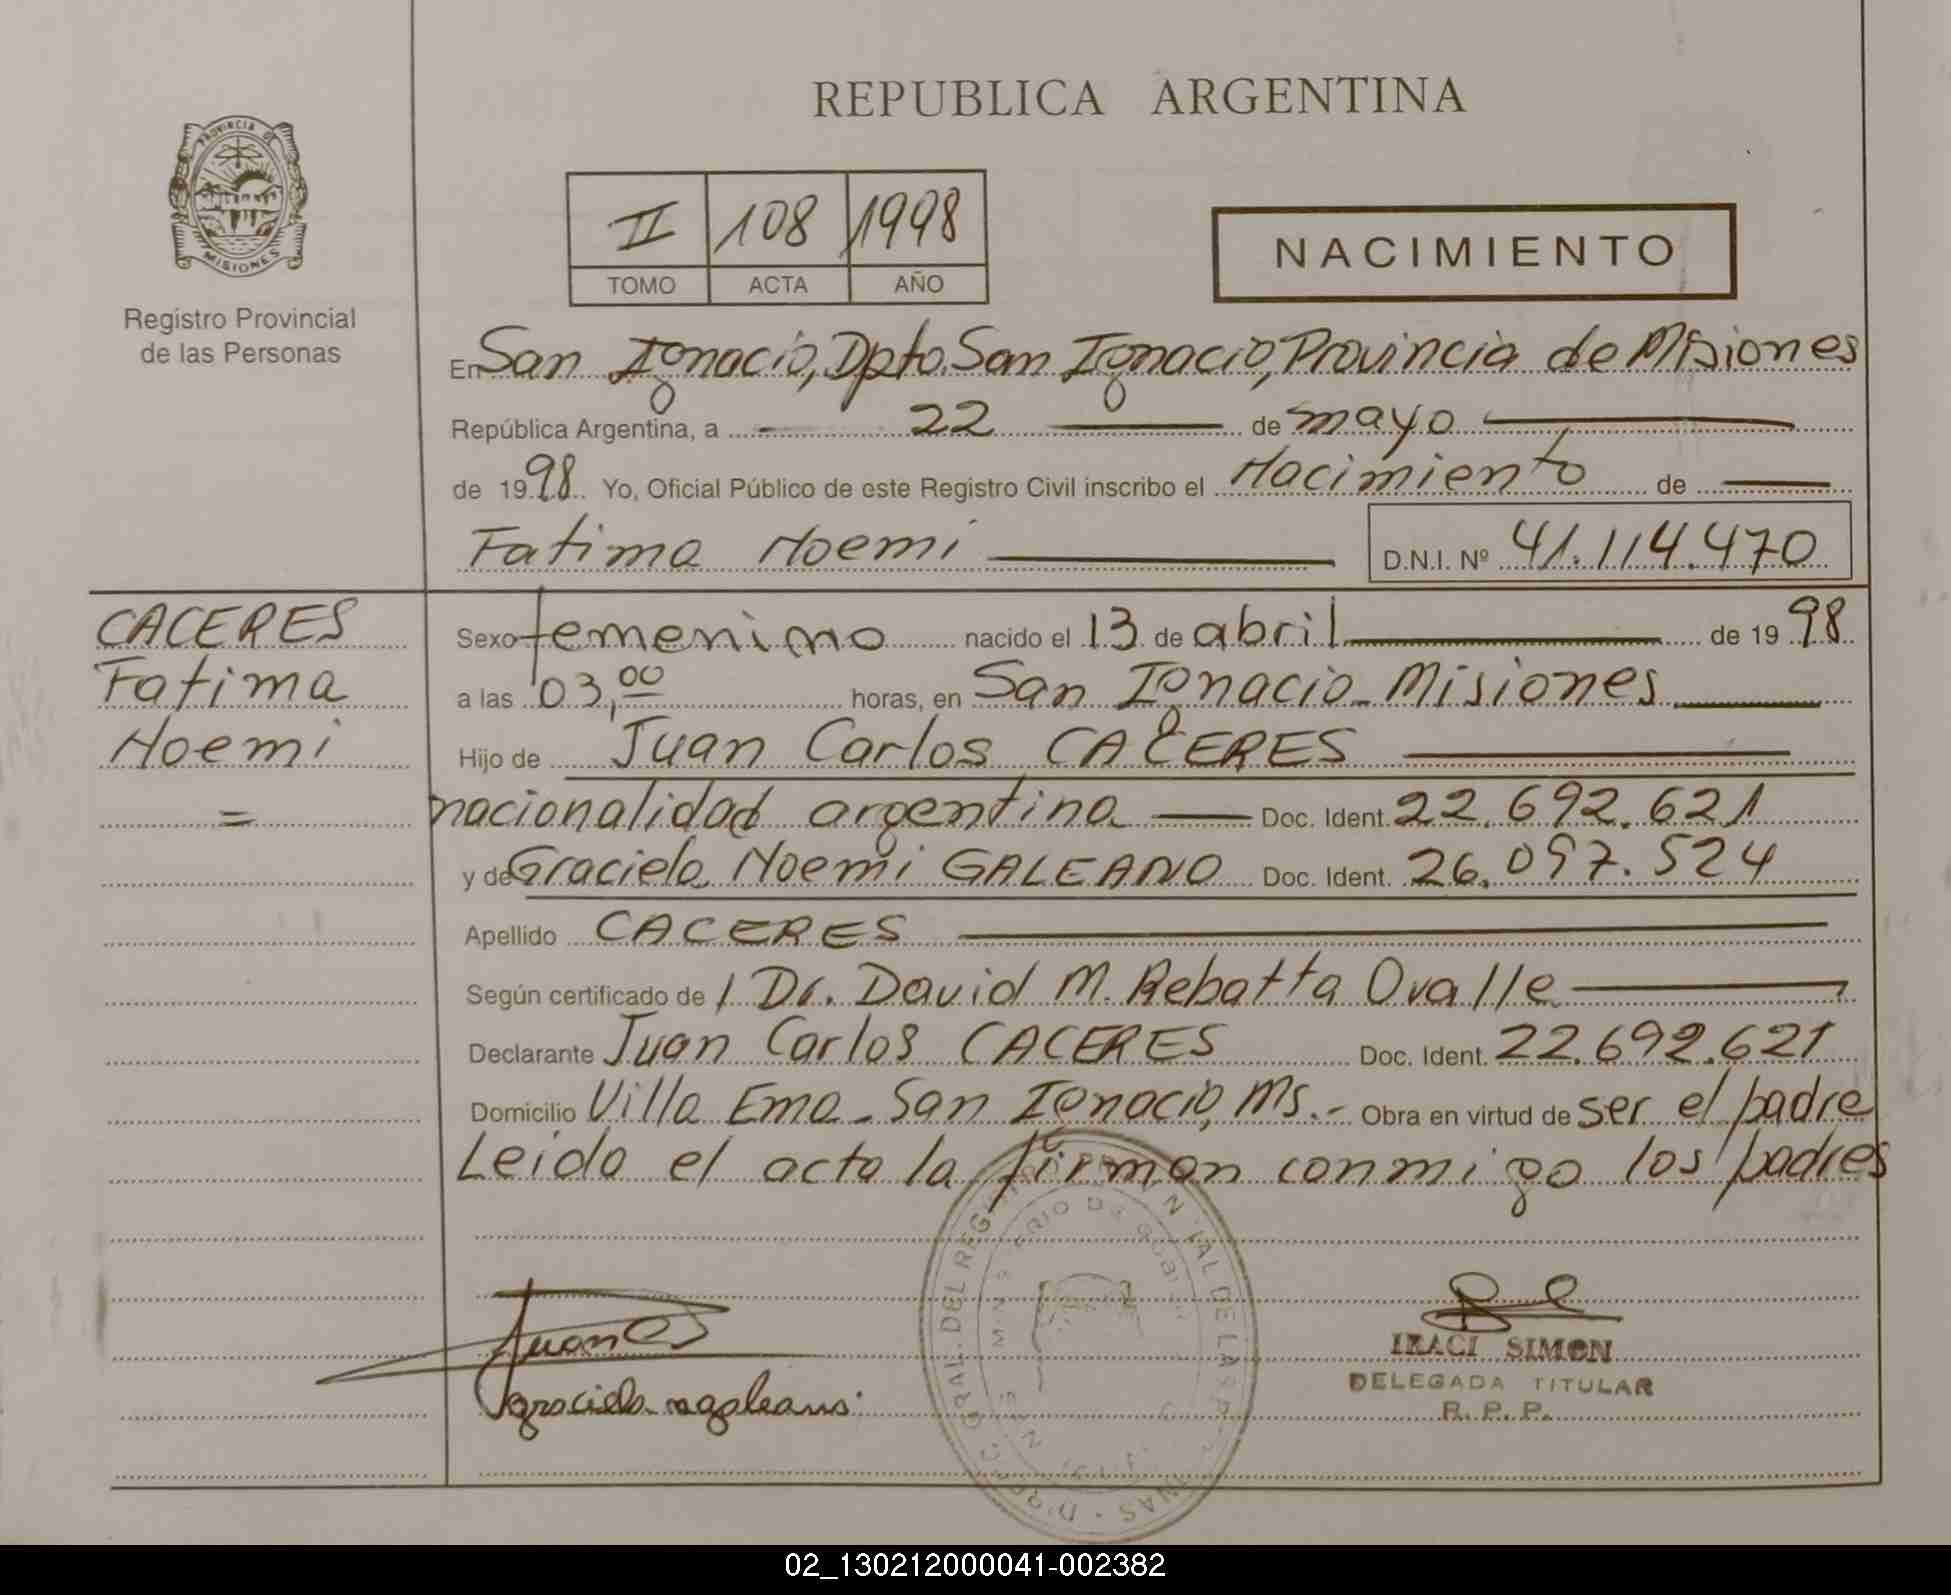 REPUBLICA ARGENTINA
PROVINCIA DE
MISIONES
Registro Provincial
de las Personas
II 108 1998
TOMO ACTA AÑO
NACIMIENTO
En San Ignacio, Dpto. San Ignacio, Provincia de Misiones
República Argentina, a 22 de mayo
de 1998 Yo, Oficial Público de este Registro Civil inscribo el Nacimiento de
Fatima Noemi D.N.I. Nº 41.114.470
CACERES
Fatima
Noemi
=
Sexo femenino nacido el 13 de abril de 1998
a las 03,00 horas, en San Ignacio - Misiones
Hijo de Juan Carlos CACERES
nacionalidad argentina Doc. Ident. 22.692.621
y de Graciela Noemi GALEANO Doc. Ident. 26.097.524
Apellido CACERES
Según certificado de Dr. David M. Rebatta Ovalle
Declarante Juan Carlos CACERES Doc. Ident. 22.692.621
Domicilio Villa Ema - San Ignacio, Ms.- Obra en virtud de ser el padre
Leida el acta la firman conmigo los padres
Juan
graciela n galeano
IRACI SIMON
DELEGADA TITULAR
R. P. P.
02_130212000041-002382